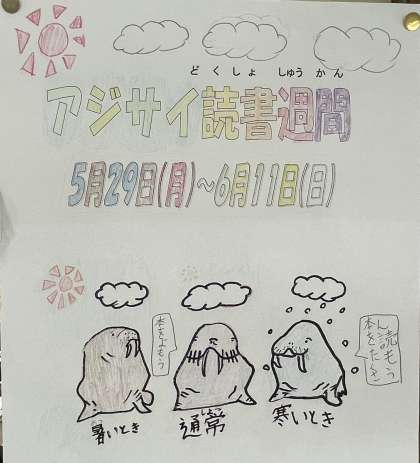 どくしょ しゅうかん
アジサイ読書週間
5月29日(月)~6月11日(日)
本をよもう
本をたくさん読もう
暑いとき
つうじょう
通常
寒いとき